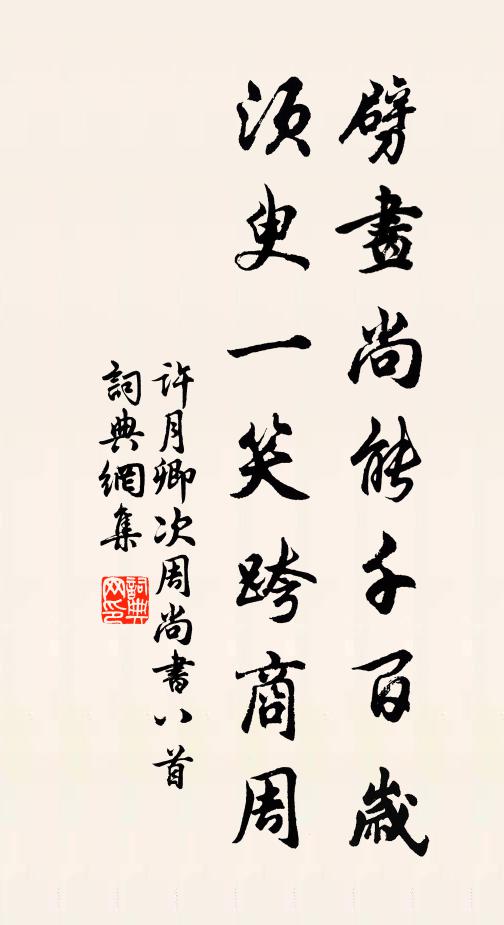 劈畫尚能千百歲
須臾一笑跨商周
許月卿次周尚書八首
詞典網集
詞典
网印